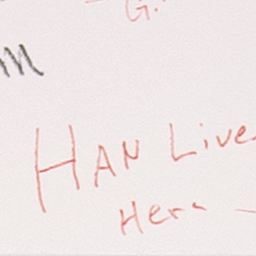 G.
m
HAN Live
Here